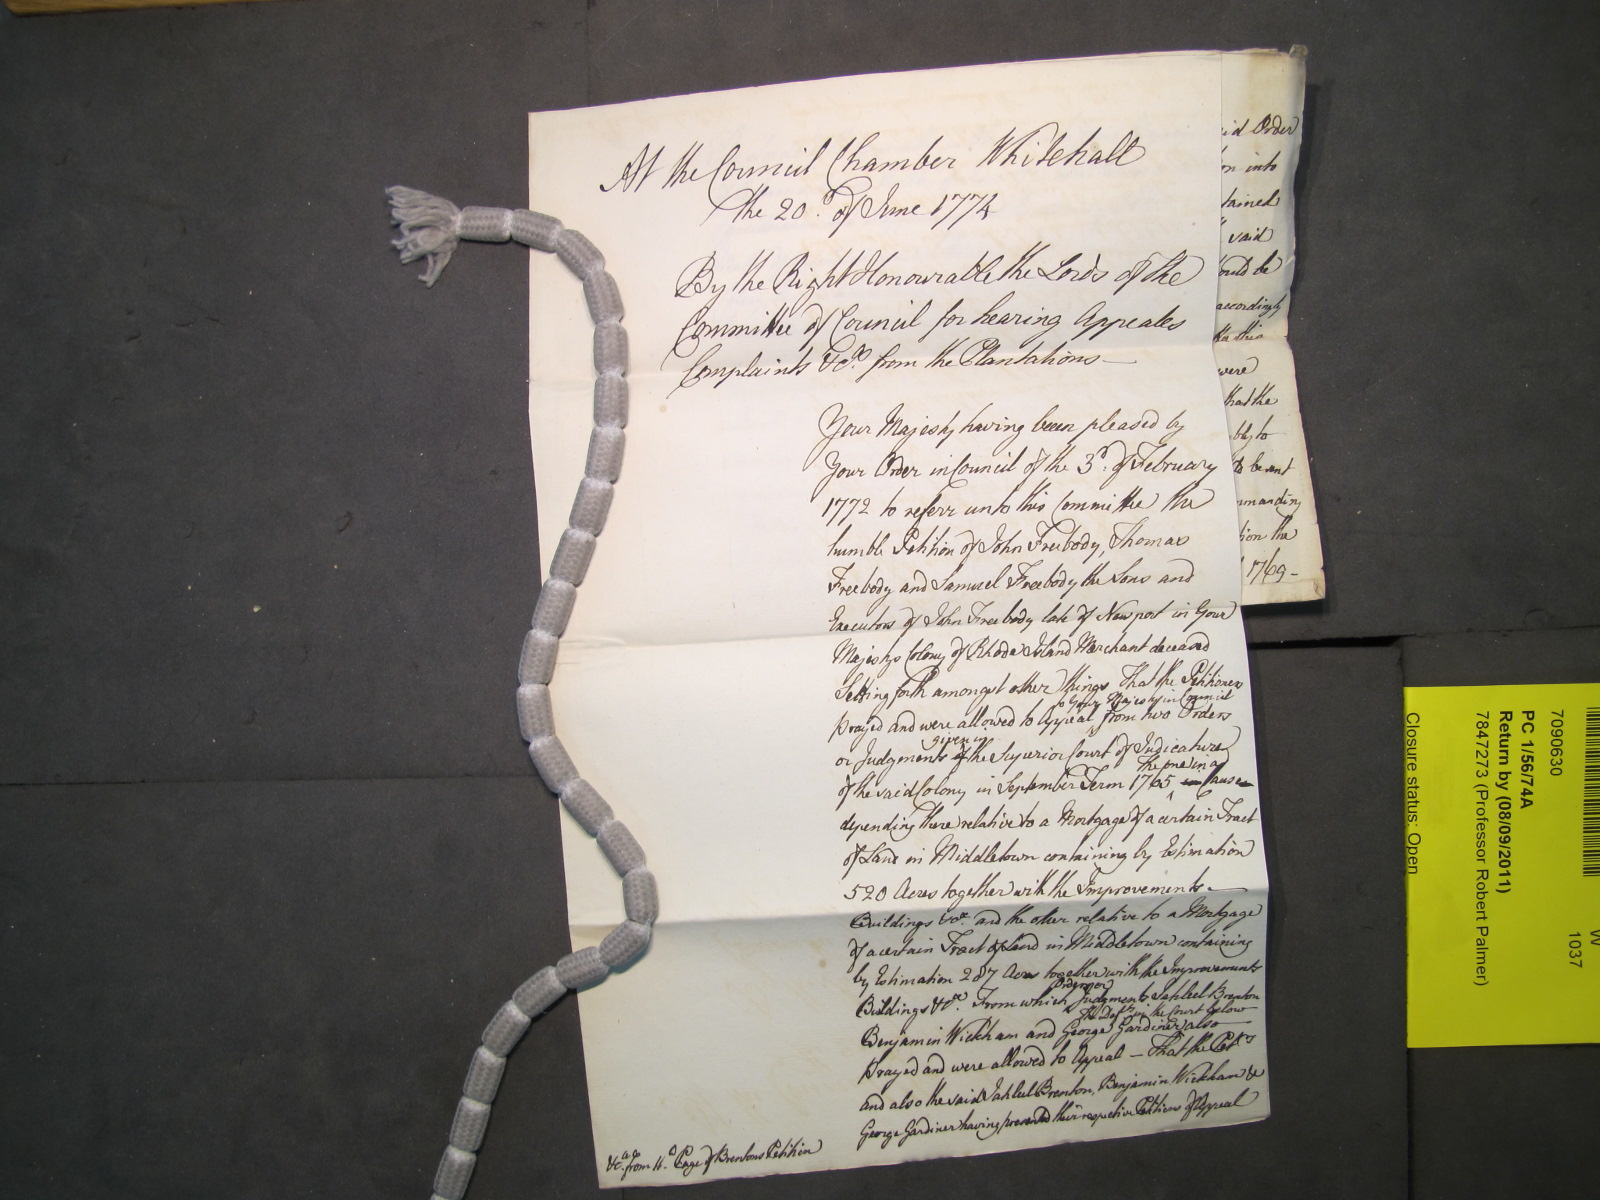 At the Council Chamber Whitehall
the 20th. of June 1774
By the Right Honourable the Lords of the
Committee of Council for hearing Appeales
Complaints &ca. from the Plantations—
Your Majesty having been pleased by
Your Order in Council of the 3d. of February
1772 to referr unto this Committee the
humble Petition of John Freebody, Thomas
Freebody and Samuel Freebody the Sons and
Executors of John Freebody late of Newport in Your
Majestys Colony of Rhode Island Merchant deceased
Setting forth amongst other things That the Petitioners
to Your Majesty in Council
prayed and were allowed to Appeal from two Orders
given in
or Judgments of the Superior Court of Judicature
The one in a
of the said Colony in September Term 1765 in Cause
depending there relative to a Mortgage of a certain Tract
of Land in Middletown containing by Estimation
520 Acres together with the Improvements
Buildings &ca. and the other relative to a Mortgage
of a certain Tract of Land in Middletown containing
by Estimation 287 Acres together with the Improvements
Orders or
Buildings &ca. From which Judgments Jahleel Brenton
the Defts. in the Court below
Benjamin Wickham and George Gardiner also
prayed and were allowed to Appeal — That the Petrs
and also the said Jahleel Brenton, Benjamin Wickham &
George Gardiner having presented their respective Petitions of Appeal
&ca. from 11.th Page of Brentons Petition
id Order
on into
tained
said
ould be
accordingly
this
were
that the
bly to
to be
mmanding
tion the
1769-
7090630
PC 1/56/74A
Return by (08/09/2011)
7847273 (Professor Robert Palmer)
Closure status: Open
W
1037